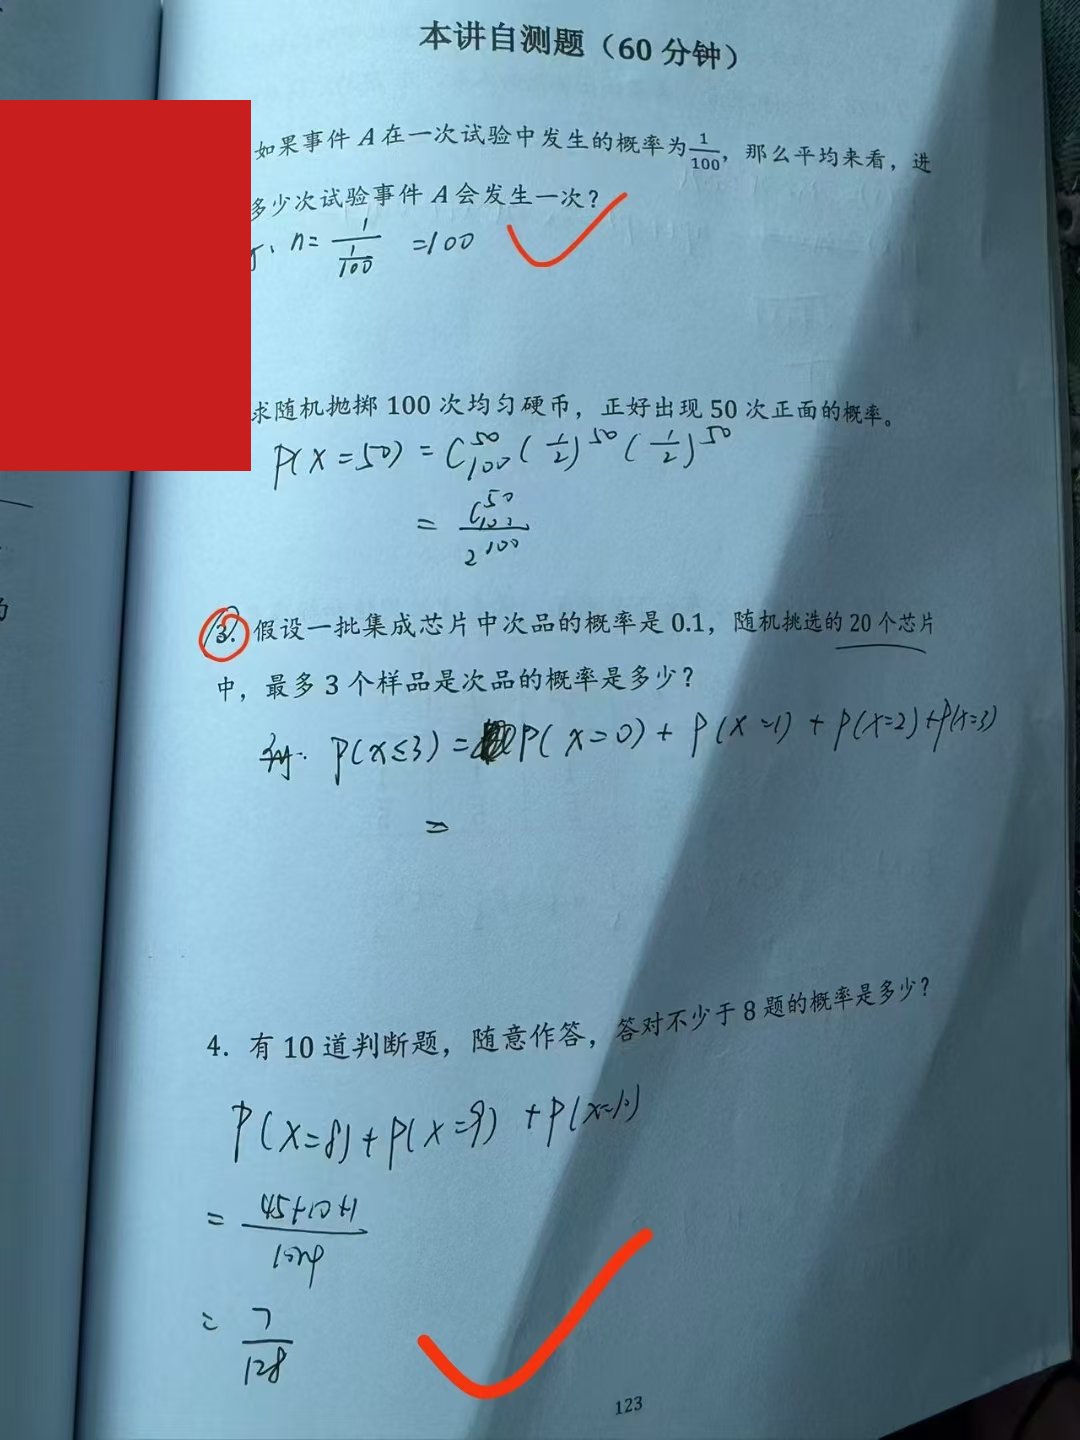 本讲自测题（60 分钟）
如果事件 A 在一次试验中发生的概率为 1/100，那么平均来看，进
多少次试验事件 A 会发生一次？
n = 1/(1/100) = 100
求随机抛掷 100 次均匀硬币，正好出现 50 次正面的概率。
P(X=50) = C₁₀₀⁵⁰ (1/2)⁵⁰ (1/2)⁵⁰
= C₁₀₀⁵⁰/2¹⁰⁰
3. 假设一批集成芯片中次品的概率是 0.1，随机挑选的 20 个芯片
中，最多 3 个样品是次品的概率是多少？
P(X≤3) = P(X=0) + P(X=1) + P(X=2) + P(X=3)
=
4. 有 10 道判断题，随意作答，答对不少于 8 题的概率是多少？
P(X=8) + P(X=9) + P(X=10)
= (45+10+1)/1024
= 7/128
123